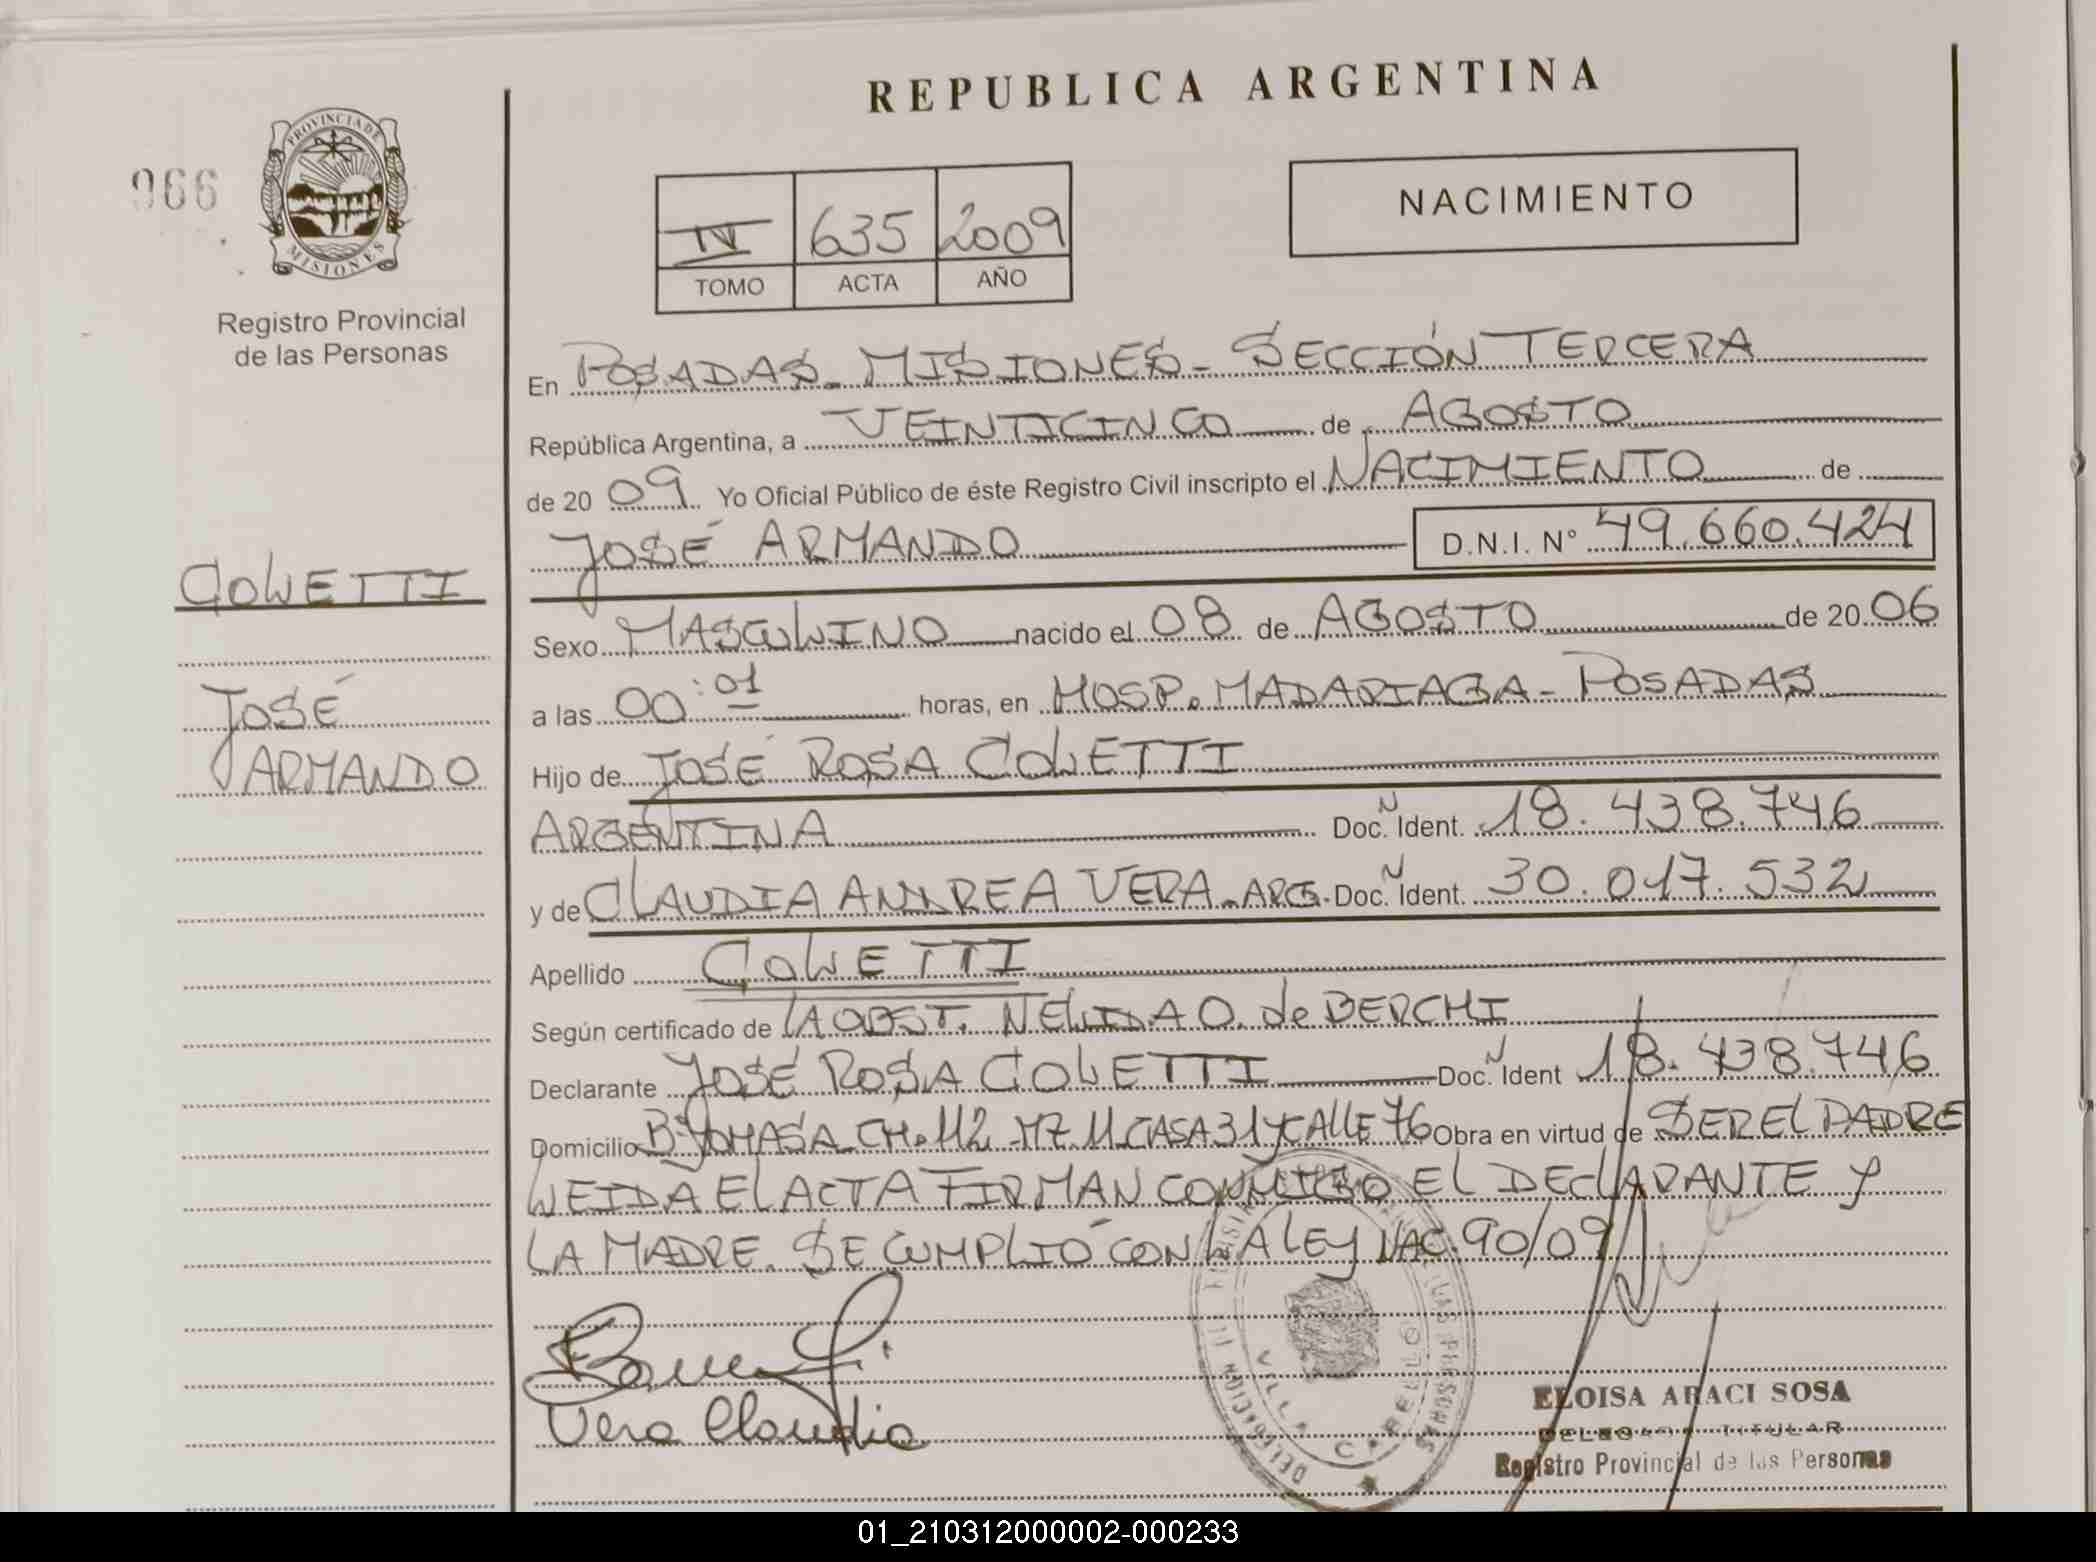 REPUBLICA ARGENTINA
966
PROVINCIA DE
MISIONES
Registro Provincial
de las Personas
IV 635 2009
TOMO ACTA AÑO
NACIMIENTO
En POSADAS - MISIONES - SECCIÓN TERCERA
República Argentina, a VEINTICINCO de AGOSTO
de 20 09 Yo Oficial Público de éste Registro Civil inscripto el NACIMIENTO de
JOSÉ ARMANDO D.N.I. N° 49.660.424
COLETTI
JOSÉ
ARMANDO
Sexo MASCULINO nacido el 08 de AGOSTO de 20 06
a las 00:01 horas, en HOSP. MADARIAGA - POSADAS
Hijo de JOSÉ ROSA COLETTI
ARGENTINA Doc. N Ident. 18.438.746
y de CLAUDIA ANDREA VERA - ARG. Doc. N Ident. 30.017.532
Apellido COLETTI
Según certificado de LA OBST. NELIDA O. de BERCHI
Declarante JOSÉ ROSA COLETTI Doc. N Ident 18.438.746
Domicilio Bº YOHASA CH. 112 MZ 11 CASA 31 y CALLE 76 Obra en virtud de SER EL PADRE
LEIDA EL ACTA FIRMAN CONMIGO EL DECLARANTE y
LA MADRE. SE CUMPLIÓ CON LA LEY NAC. 90/09
Vera Claudia
DELEGACION
VILLA CABELLO
LAS PERSONAS
ELOISA ARACI SOSA
DELEGADA TITULAR
Registro Provincial de las Personas
01_210312000002-000233